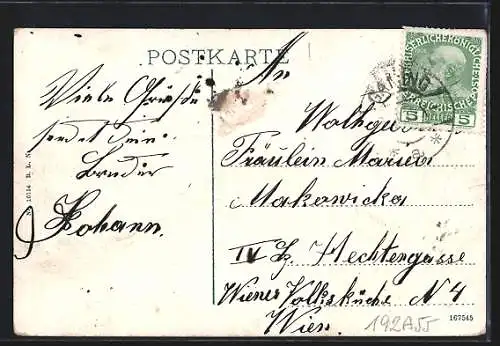 POSTKARTE
Viele Grüße
sendet dein
Bruder
Johann.
No 10134 B. L. N.
An
Wohlgeb.
Fräulein Marie
Makowicka
IV Bz. Hechtengasse
Wiener Volksküche N 4
Wien.
KAISERLICHE KÖNIGLICHE ÖSTERREICHISCHE POST
5 HELLER 5
192A55
167545